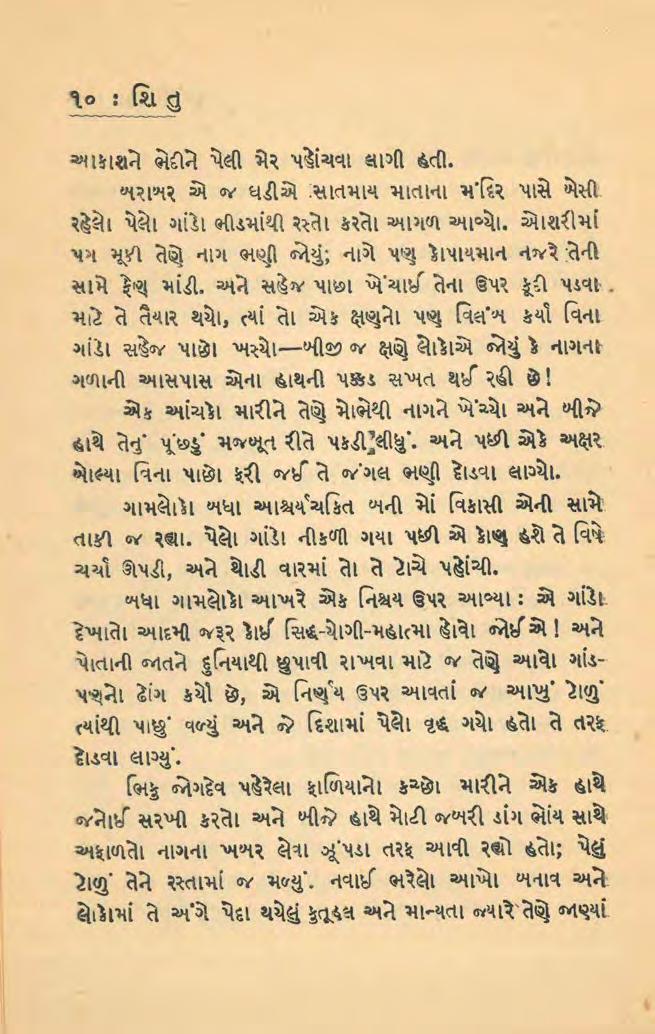 ૧૦ : શિતુ
આકાશને ભેદીને પેલી મેર પહોંચવા લાગી હતી.
બરાબર એ જ ઘડીએ સાતમાય માતાના મંદિર પાસે બેસી
રહેલો પેલો ગાંડો ભીડમાંથી રસ્તો કરતો આગળ આવ્યો. ઓશરીમાં
પગ મૂકી તેણે નાગ ભણી જોયું; નાગે પણ કોપાયમાન નજરે તેની
સામે ફેણ માંડી. અને સહેજ પાછા ખેંચાઈ તેના ઉપર કૂદી પડવા
માટે તે તૈયાર થયો, ત્યાં તો એક ક્ષણનો પણ વિલંબ કર્યા વિના
ગાંડો સહેજ પાછો ખસ્યો—બીજી જ ક્ષણે લોકોએ જોયું કે નાગના
ગળાની આસપાસ એના હાથની પક્કડ સખત થઈ રહી છે!
એક આંચકો મારીને તેણે મોભેથી નાગને ખેંચ્યો અને બીજે
હાથે તેનું પૂંછડું મજબૂત રીતે પકડી લીધું. અને પછી એકે અક્ષર
બોલ્યા વિના પાછો ફરી જઈ તે જંગલ ભણી દોડવા લાગ્યો.
ગામલોકો બધા આશ્ચર્યચકિત બની મોં વિકાસી એની સામે
તાકી જ રહ્યા. પેલો ગાંડો નીકળી ગયા પછી એ કોણ હશે તે વિષે
ચર્ચા ઊપડી, અને થોડી વારમાં તો તે ટોચે પહોંચી.
બધા ગામલોકો આખરે એક નિશ્ચય ઉપર આવ્યા : એ ગાંડો
દેખાતો આદમી જરૂર કોઈ સિદ્ધ-યોગી-મહાત્મા હોવો જોઈએ! અને
પોતાની જાતને દુનિયાથી છુપાવી રાખવા માટે જ તેણે આવો ગાંડ-
પણનો ઢોંગ કર્યો છે, એ નિર્ણય ઉપર આવતાં જ આખું ટોળું
ત્યાંથી પાછું વળ્યું અને જે દિશામાં પેલો વૃદ્ધ ગયો હતો તે તરફ
દોડવા લાગ્યું.
ભિકુ જોગદેવ પહેરેલા ફાળિયાનો કચ્છો મારીને એક હાથે
જનોઈ સરખી કરતો અને બીજે હાથે મોટી જબરી ડાંગ ભોંય સાથે
અફાળતો નાગના ખબર લેવા ઝૂંપડા તરફ આવી રહ્યો હતો; પેલું
ટોળું તેને રસ્તામાં જ મળ્યું. નવાઈ ભરેલો આખો બનાવ અને
લોકોમાં તે અંગે પેદા થયેલું કુતૂહલ અને માન્યતા જ્યારે તેણે જાણ્યાં